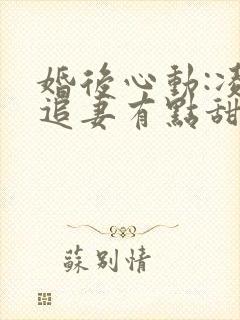 婚後心動:凌
追妻有點甜
蘇別情